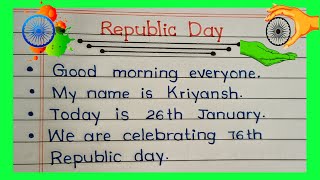 Republic Day
• Good morning everyone.
• My name is Kriyansh.
• Today is 26th January.
• We are celebrating 76th
Republic day.